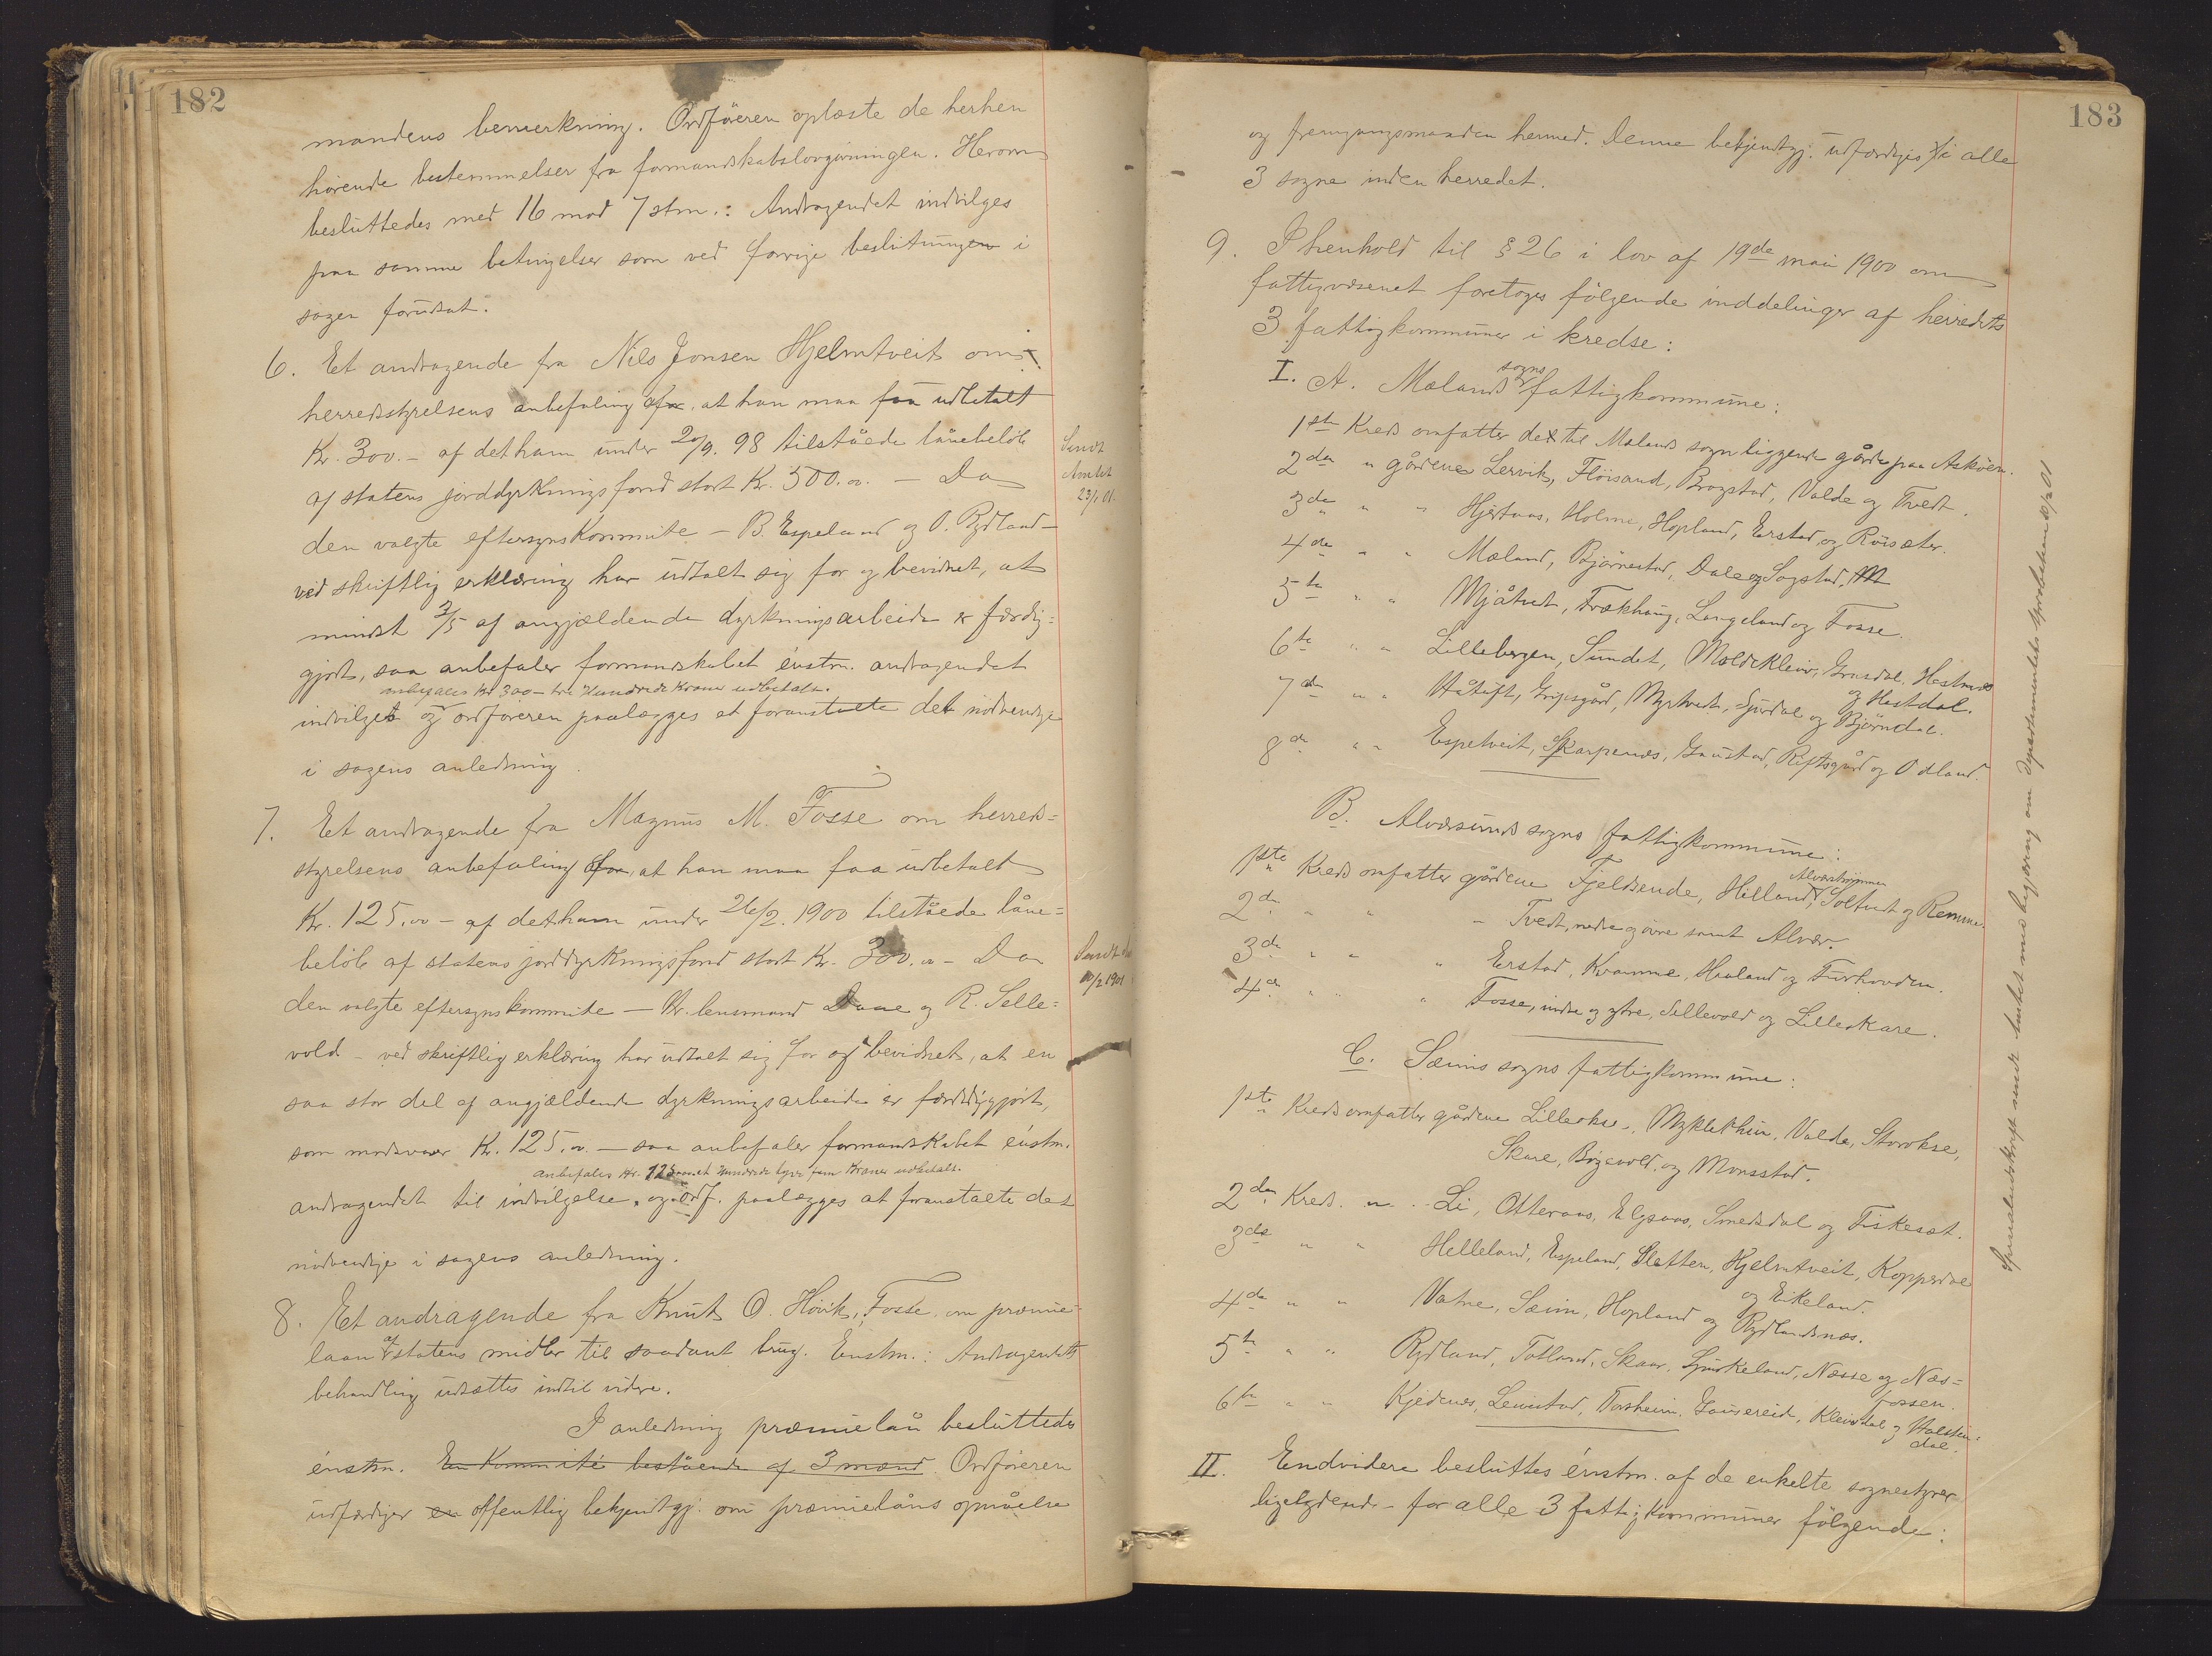 182
mandens bemerkning. Ordføreren oplæste de herhen
hørende bestemmelser fra formandskabslovgivningen. Herom
besluttedes med 16 mod 7 stm.: Andragendet indvilges
paa samme betingelser som ved forrige beslutninger i
sagen forudsat.
6. Et andragende fra Nils Jonsen Hjelmtveit om
herredsstyrelsens anbefaling for, at han maa faa udbetalt
Kr. 300.- af det ham under 20/9. 98 tilståede lånebeløb
af statens jorddyrkningsfond stort Kr. 500.00. - Da
den valgte eftersynskommite - B. Espeland og O. Rydland -
ved skriftlig erklæring har udtalt sig for og bevidnet, at
mindst 3/5 af angjældende dyrkningsarbeide er færdig=
gjort, saa anbefaler formandskabet énstm. andragendet
anbefales Kr 300 - tre Hundrede Kroner udbetalt.
indvilget og ordføreren paalægges at foranstalte det nødvendige
i sagens anledning.
Sendt
Amtet
23/1.01.
7. Et andragende fra Magnus M. Fosse om herreds=
styrelsens anbefaling for, at han maa faa udbetalt
Kr. 125.00 - af det ham under 26/2. 1900 tilståede låne=
beløb af statens jorddyrkningsfond stort Kr. 300.00 - Da
den valgte eftersynskommite - Hr. lensmand Daae og R. Selle=
vold - ved skriftlig erklæring har udtalt sig for og bevidnet, at en
saa stor del af angjældende dyrkningsarbeide er færdiggjort,
som modsvarer Kr. 125.00 - saa anbefaler formandskabet énstm.
anbefales Kr. 125 et Hundrede tyve fem Kroner udbetalt.
andragendet til indvilgelse, og ordf. paalægges at foranstalte det
nødvendige i sagens anledning.
Sendt
10/2 1901
8. Et andragende fra Knut O. Høvik, Fosse, om præmie=
laan af statens midler til saadant brug. Enstm.: Andragendets
behandling udsættes indtil videre.
I anledning præmielån besluttedes
énstm. En Kommité bestående af 3 mænd. Ordføreren
udfærdiger en offentlig bekjendtgj. om præmielåns opnåelse
183
og fremgangsmaaden hermed. Denne bekjendtgj. udfærdiges i alle
3 sogne inden herredet.
9. I henhold til § 26 i lov af 19de mai 1900 om
fattigvæsenet foretages følgende inddelinger af herredets
3 fattigkommuner i kredse:
I. A. Mælands sogns fattigkommune:
1ste Kreds omfatter de til Mælands sogn liggende gårde paa Askøen.
2den " gårdene Lervik, Fløisand, Brogstad, Valde og Tvedt.
3die " " Hjertaas, Holme, Hopland, Erstad, og Røisæter.
4de " " Mæland, Bjørnestad, Dale og Sagstad.
5te " " Mjåtvedt, Frækhaug, Langeland og Fosse.
6te " " Lillebergen, Sundet, Moldekleiv, Grasdal, Hestnæs
og Hestdal.
7de " " Håtuft, Gripsgård, Myrtvedt, Spurdal og Bjørndal.
8de " " Espetveit, Skarpenes, Gaustad, Riftsgård og Odland.
B. Alversunds sogns fattigkommune:
1ste Kreds omfatter gårdene Fjeldsende, Hilland, Alverstrømmen Soltvedt og Remme.
2de " " " Tvedt, nedre og øvre samt Alver.
3die " " " Erstad, Kvamme, Haland og Furhovden.
4de " " " Fosse, indre og ytre, Sellevold og Lilleskare.
C. Sæims sogns fattigkommune:
1ste Kreds omfatter gårdene Lilleokse, Myklethun, Valde, Storokse,
Skare, Bøgevold og Monsstad.
2den Kreds " " Li, Otteraas, Elgsaas, Smedsdal og Fiskesæt.
3die " " Helleland, Espeland, Sletten, Hjelmtveit, Koppsdal
og Eikeland.
4de " " Vatne, Sæim, Hopland og Rydlandsnæs.
5te " " Rydland, Totland, Skaar, Spurkeland, Næsse og Næs=
fossen.
6te " " Kjedenes, Leirestad, Torsheim, Gausereid, Kleivdal og Halsten=
dal.
II. Endvidere besluttes énstm. af de enkelte sognestyrer
ligelydende - for alle 3 fattigkommuner følgende:
sendt Amtet med begjæring om departementets Approbation 10/2 01